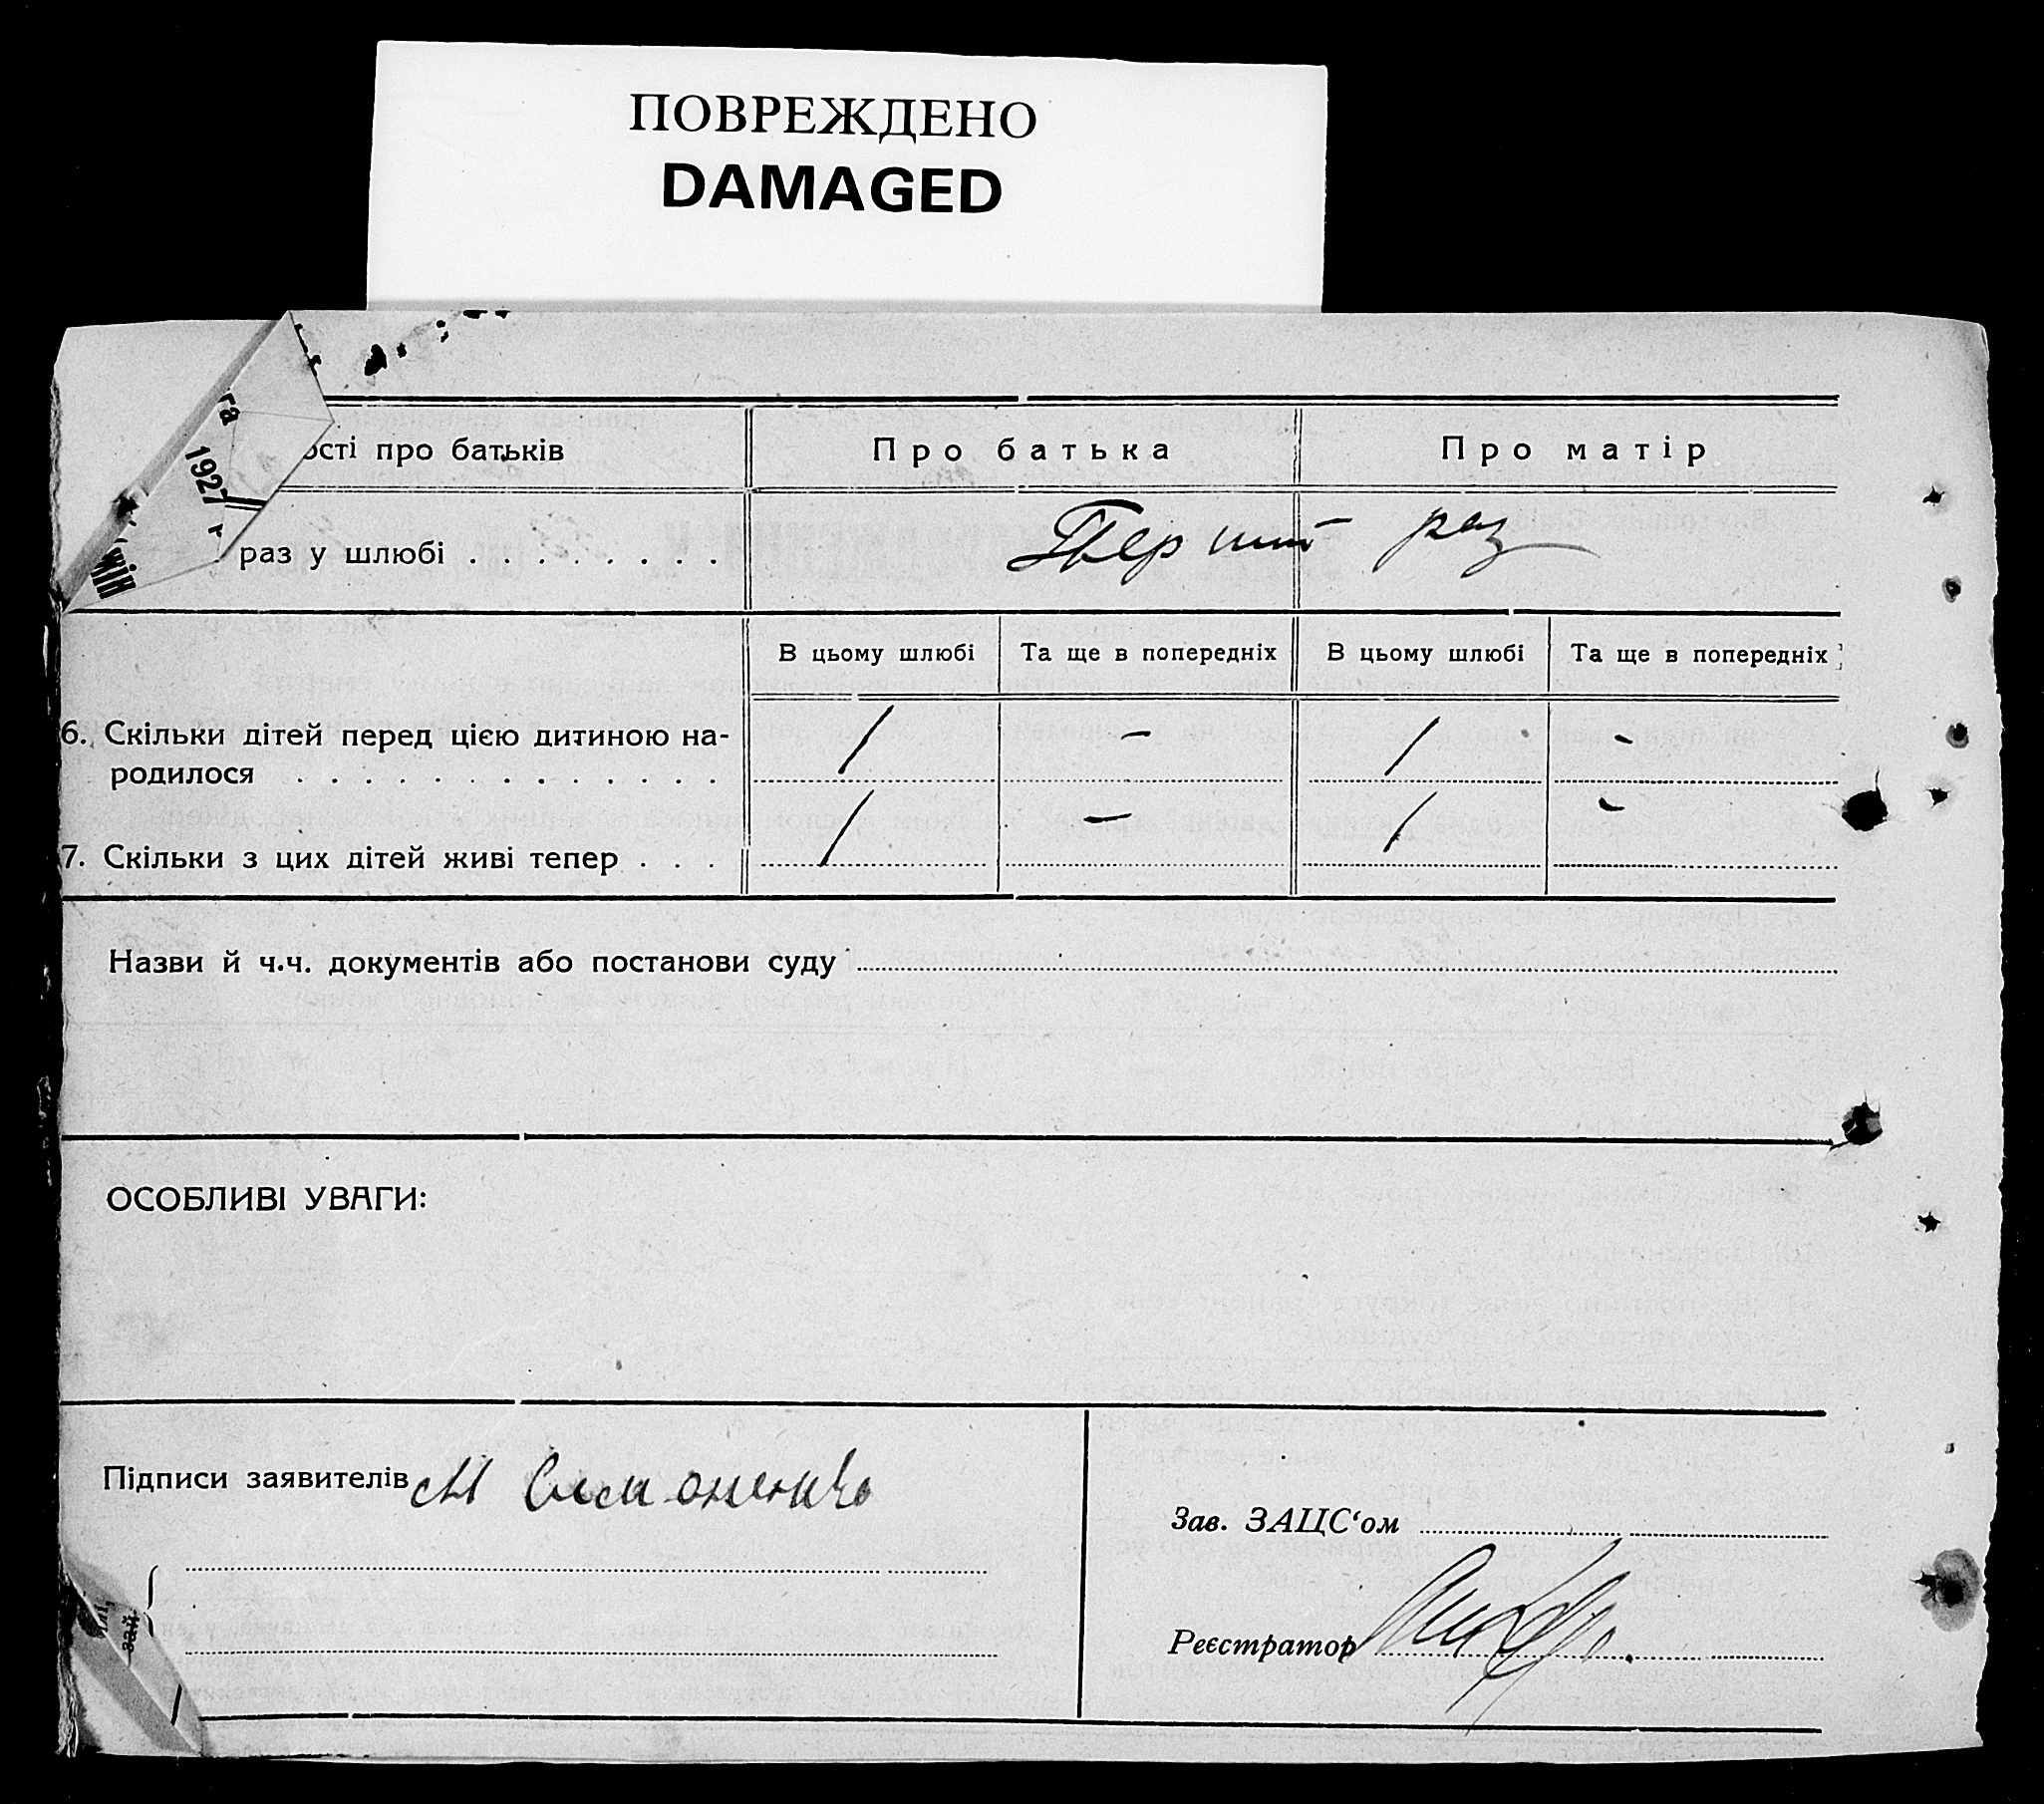 ПОВРЕЖДЕНО
DAMAGED
га
1927 г
жін
ості про батьків
Про батька
Про матір
раз у шлюбі . . . . . . . .
Перший раз
В цьому шлюбі
Та ще в попередніх
В цьому шлюбі
Та ще в попередніх
6. Скільки дітей перед цією дитиною на-
родилося . . . . . . . . . . . . .
/ – / -
7. Скільки з цих дітей живі тепер . . .
/ – / -
Назви й ч.ч. документів або постанови суду
ОСОБЛИВІ УВАГИ:
Підписи заявителів М Симоненко
зай
Зав. ЗАЦС‘ом
Реєстратор